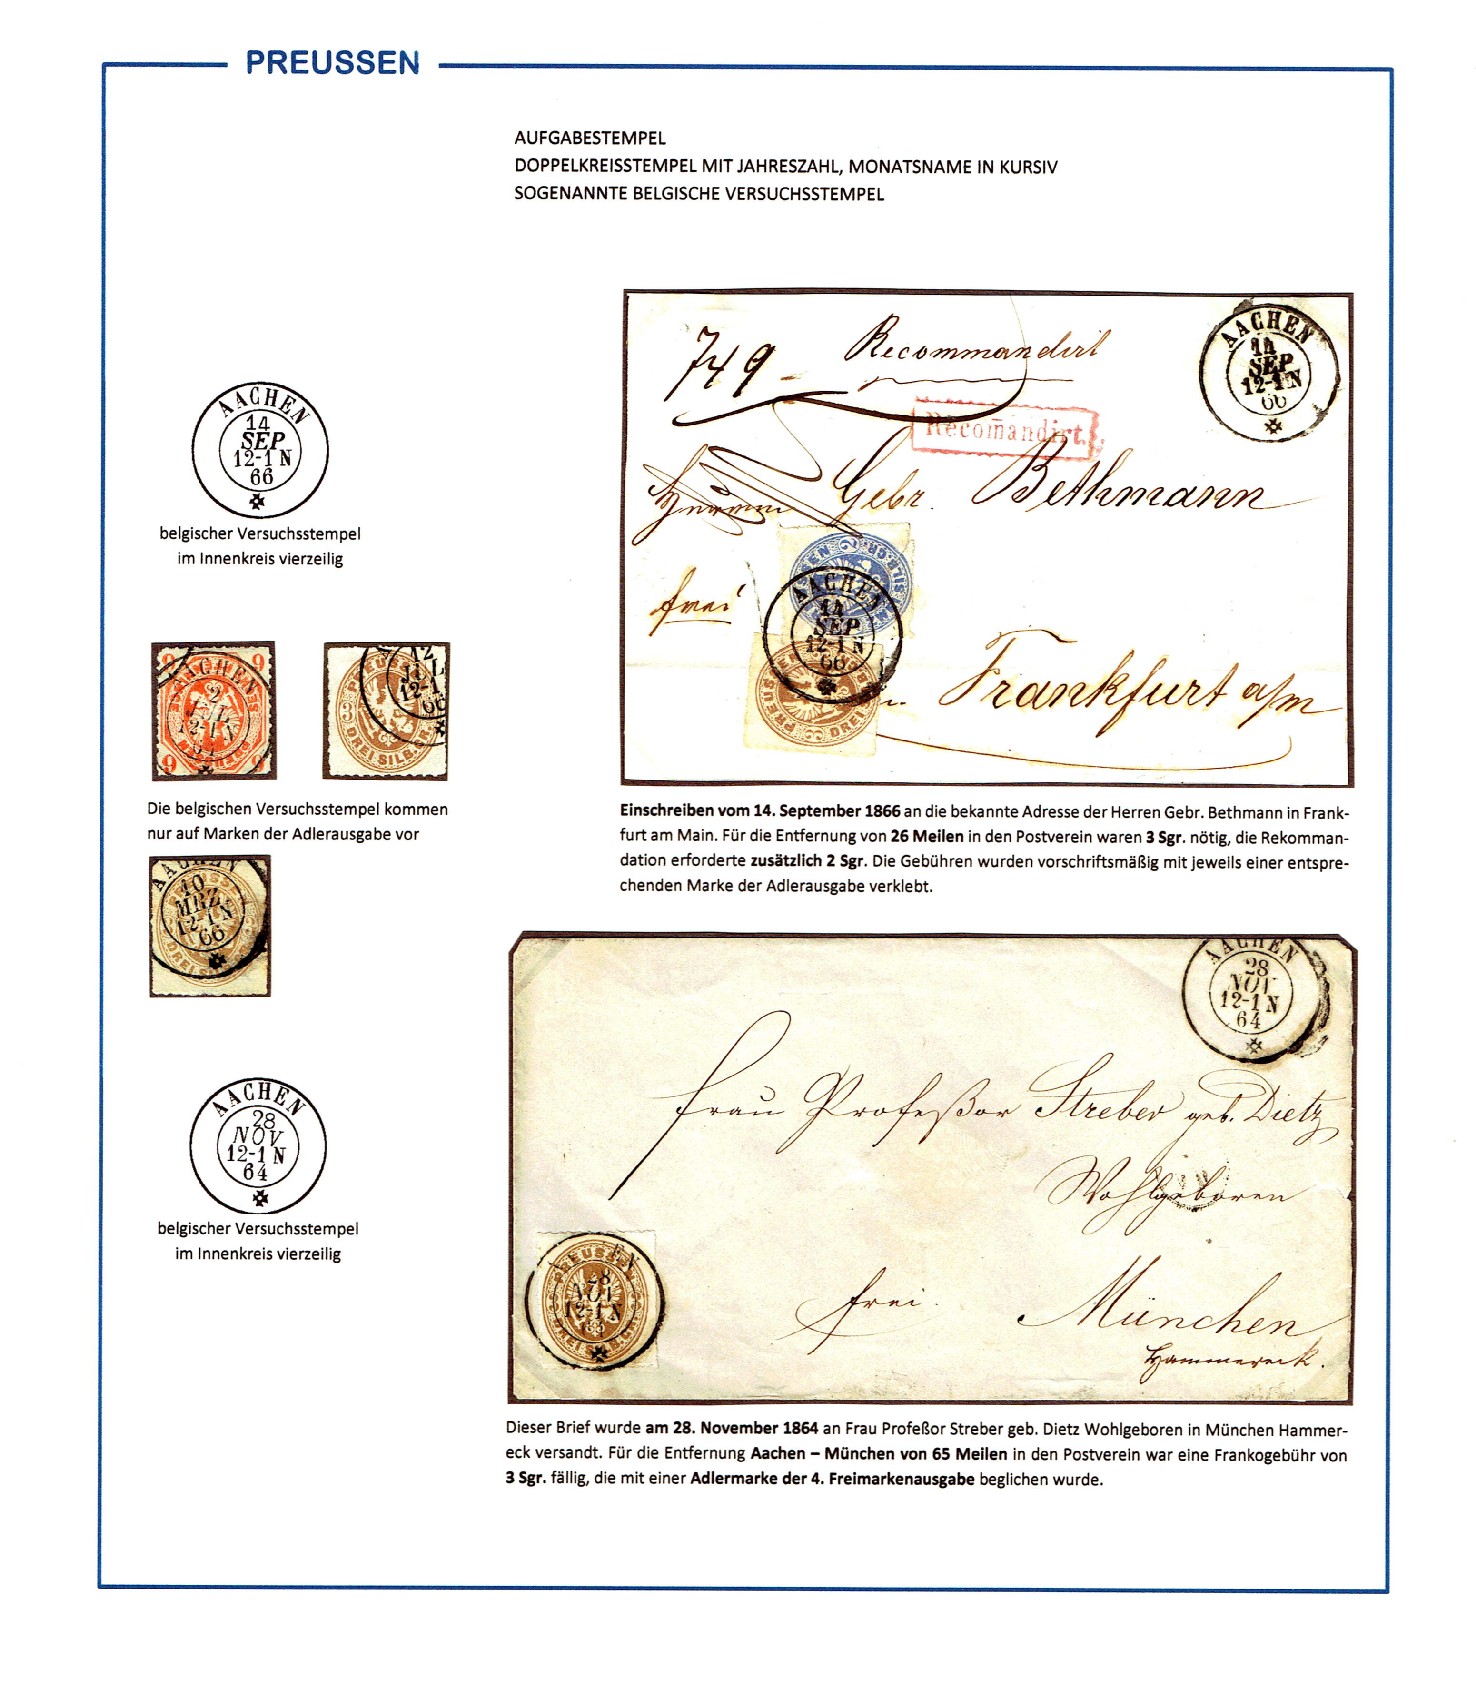 PREUSSEN
AUFGABESTEMPEL
DOPPELKREISSTEMPEL MIT JAHRESZAHL, MONATSNAME IN KURSIV
SOGENANNTE BELGISCHE VERSUCHSSTEMPEL
AACHEN
14
SEP
12-1 N
66
belgischer Versuchsstempel
im Innenkreis vierzeilig
9 9
AACHEN
2
JUL
12-1 N
9 9
PREUSSEN
12
JUL
12-1
66
3
DREI SILB.GR.
Die belgischen Versuchsstempel kommen
nur auf Marken der Adlerausgabe vor
AACHEN
10
MRZ.
12-1 N
66
DREI SILB.GR.
AACHEN
28
NOV
12-1 N
64
belgischer Versuchsstempel
im Innenkreis vierzeilig
749 Recommandirt
Recom̄andirt.
AACHEN
14
SEP
12-1 N
66
Gebr. Bethmann
frei
2 SILB.GR.
AACHEN
14
SEP
12-1 N
66
PREUSSEN 3 DREI
Frankfurt a/m
Einschreiben vom 14. September 1866 an die bekannte Adresse der Herren Gebr. Bethmann in Frank-
furt am Main. Für die Entfernung von 26 Meilen in den Postverein waren 3 Sgr. nötig, die Rekomman-
dation erforderte zusätzlich 2 Sgr. Die Gebühren wurden vorschriftsmäßig mit jeweils einer entspre-
chenden Marke der Adlerausgabe verklebt.
AACHEN
28
NOV
12-1 N
64
Frau Profeßor Streber geb. Dietz
Wohlgeboren
frei. München
Hammereck.
PREUSSEN
28
NOV
12-1 N
DREI SILB.GR.
Dieser Brief wurde am 28. November 1864 an Frau Profeßor Streber geb. Dietz Wohlgeboren in München Hammer-
eck versandt. Für die Entfernung Aachen – München von 65 Meilen in den Postverein war eine Frankogebühr von
3 Sgr. fällig, die mit einer Adlermarke der 4. Freimarkenausgabe beglichen wurde.